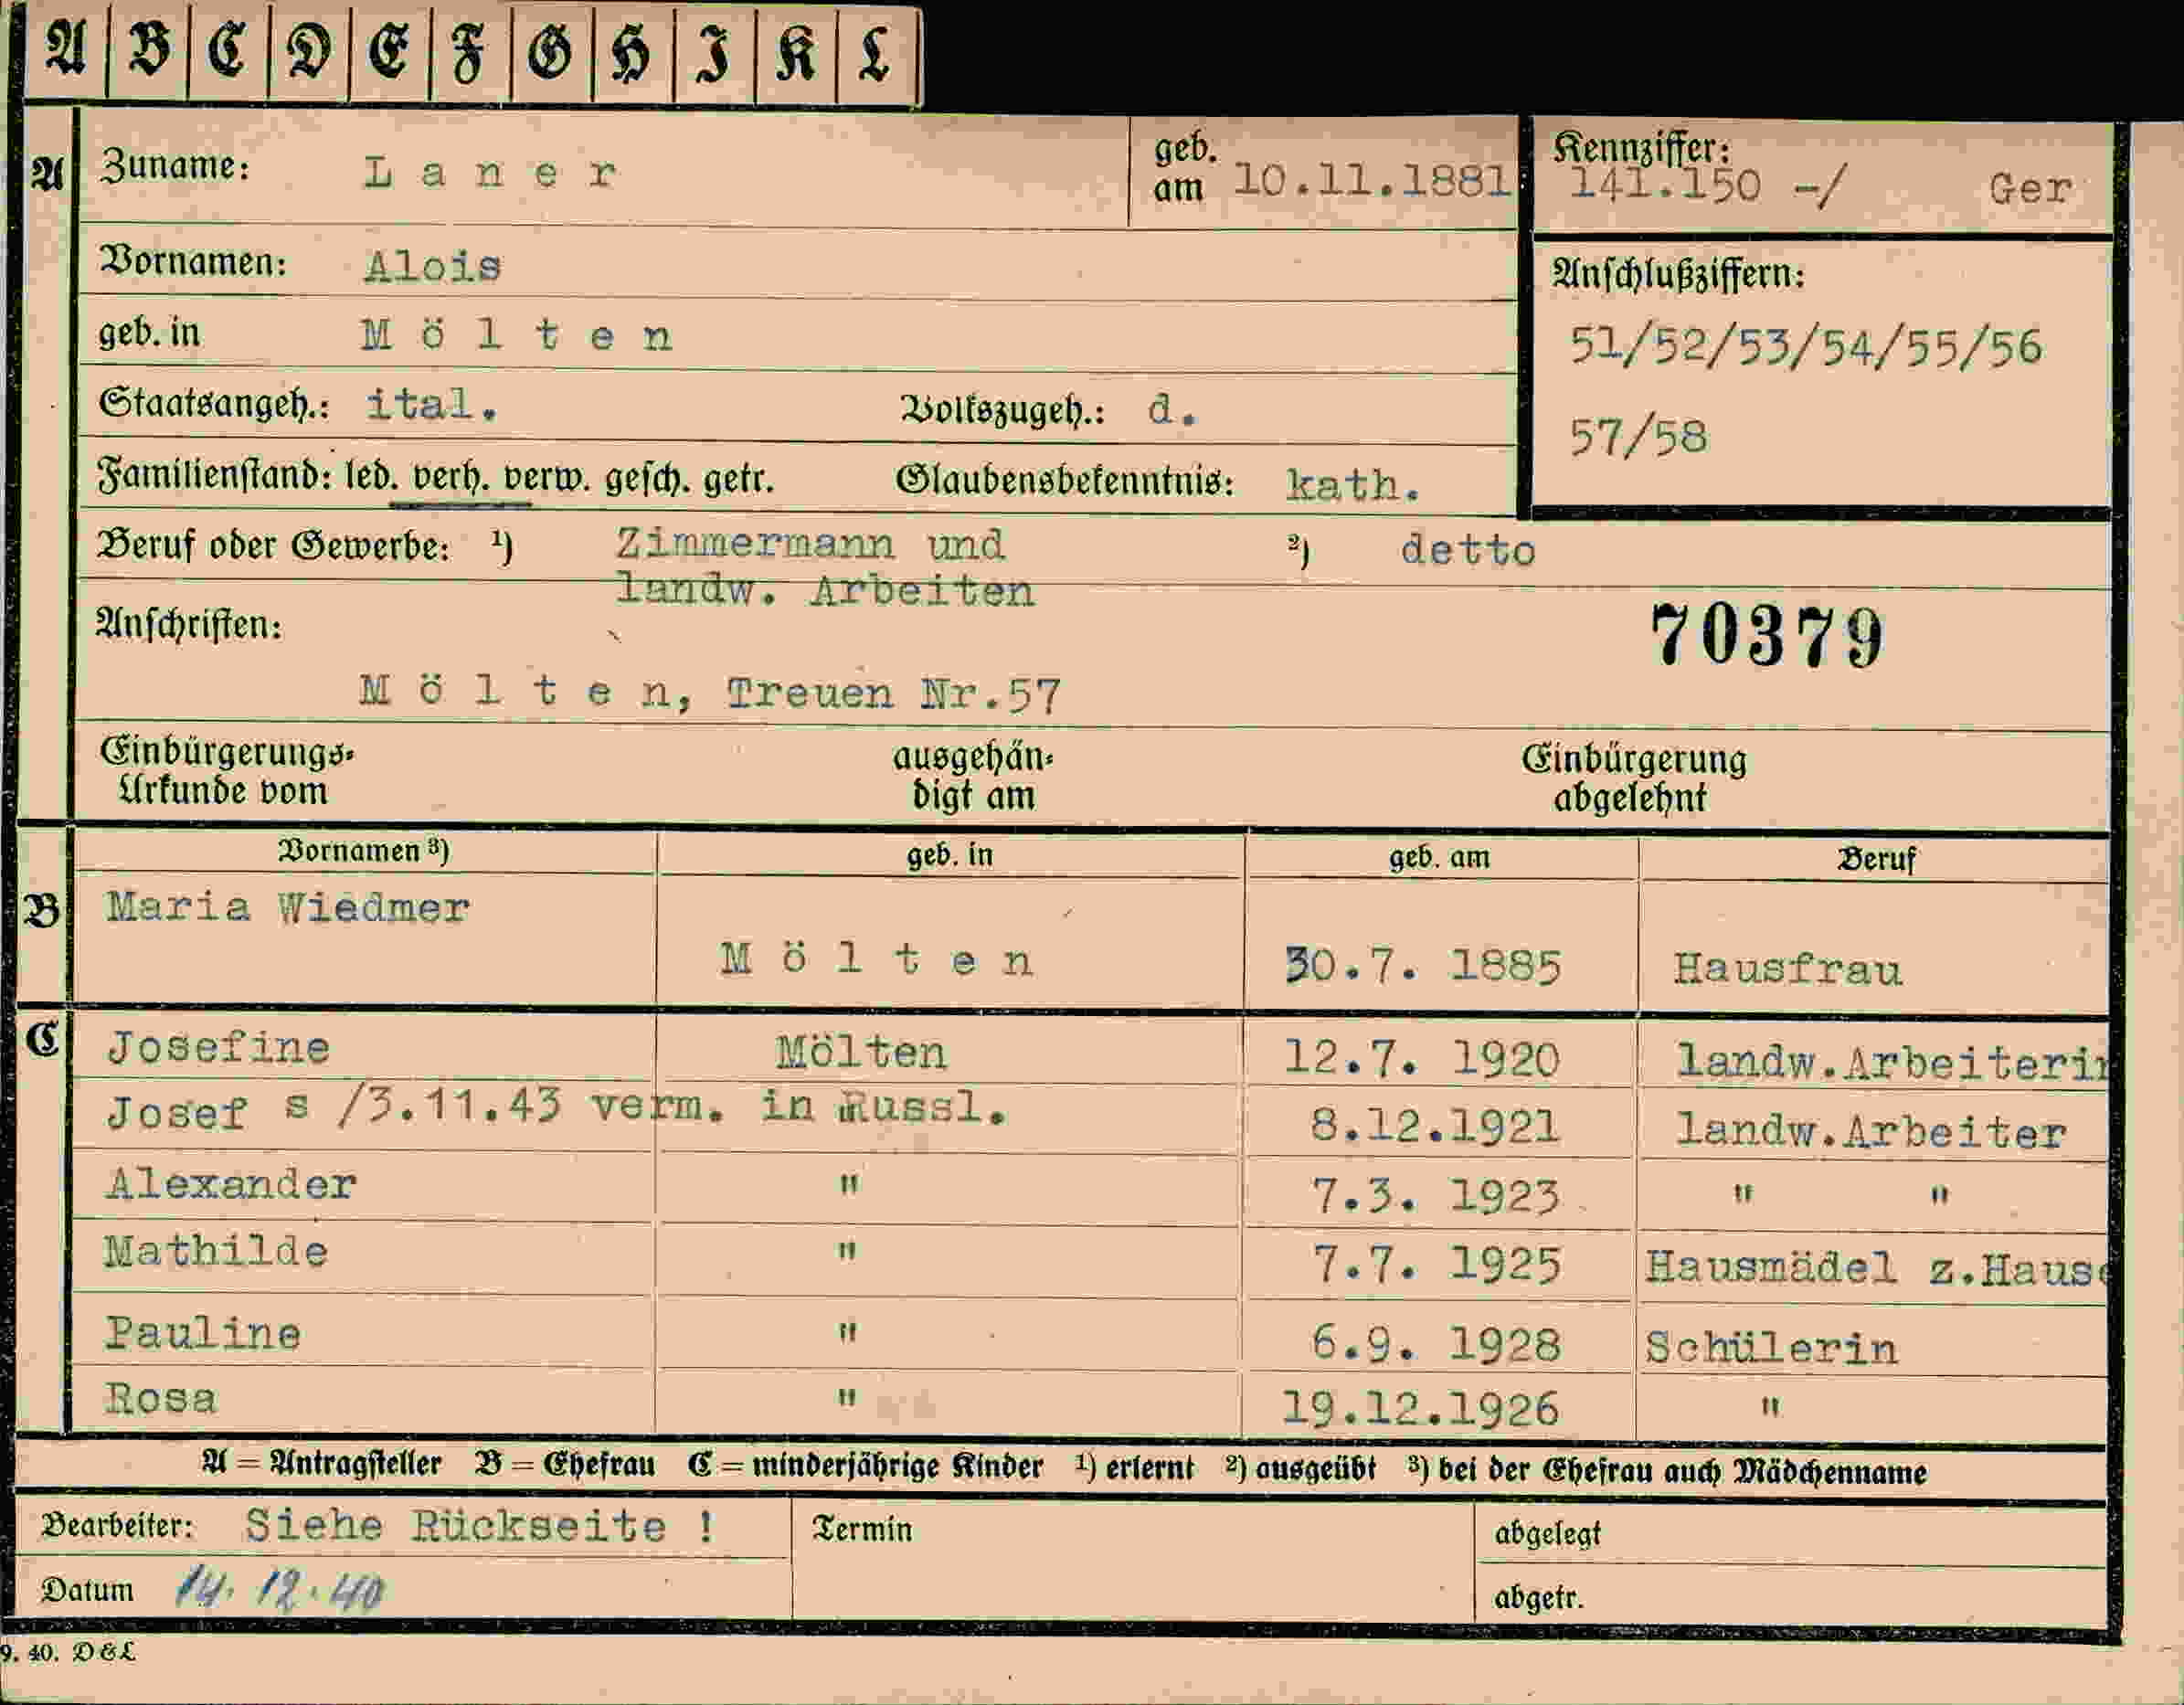 A B C D E F G H I K L
A Zuname: Laner geb. am 10.11.1881
Kennziffer: 141.150 -/ Ger
Vornamen: Alois
Anschlußziffern:
geb. in Mölten
51/52/53/54/55/56
Staatsangeh.: ital. Volkszugeh.: d.
57/58
Familienstand: led. verh. verw. gesch. getr. Glaubensbekenntnis: kath.
Beruf oder Gewerbe: ¹) Zimmermann und ²) detto
landw. Arbeiten
Anschriften: 70379
Mölten, Treuen Nr.57
Einbürgerungs- ausgehän- Einbürgerung
Urkunde vom digt am abgelehnt
Vornamen ³) geb. in geb. am Beruf
B Maria Wiedmer
Mölten 30.7. 1885 Hausfrau
C Josefine Mölten 12.7. 1920 landw.Arbeiterin
Josef s /3.11.43 verm. in Russl. 8.12.1921 landw.Arbeiter
Alexander " 7.3. 1923 " "
Mathilde " 7.7. 1925 Hausmädel z.Hause
Pauline " 6.9. 1928 Schülerin
Rosa " 19.12.1926 "
A = Antragsteller B = Ehefrau C = minderjährige Kinder ¹) erlernt ²) ausgeübt ³) bei der Ehefrau auch Mädchenname
Bearbeiter: Siehe Rückseite ! Termin abgelegt
Datum 14.12.40 abgetr.
9. 40. D&L